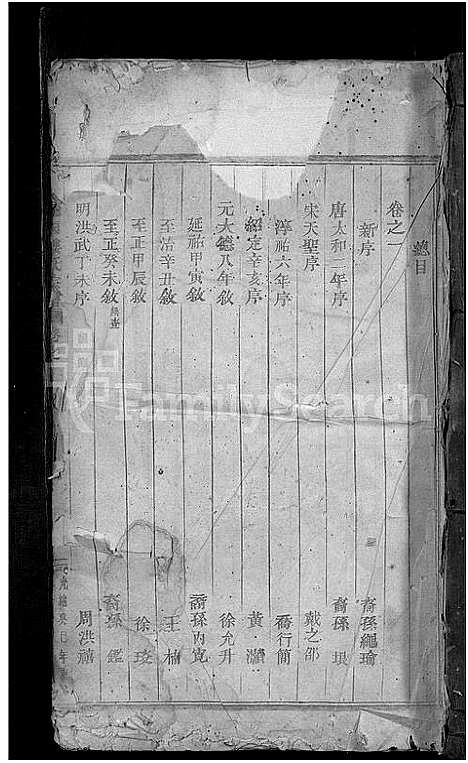 總目
卷之一
新序 裔孫繩瑜
唐太和二年序 裔孫琅
宋天聖序 戴之邵
淳祐六年序 喬行簡
紹定辛亥序 黃灝
元大德八年敘 徐允升
延祐甲寅敘 裔孫內寬
至治辛丑敘 王楠
至正甲辰敘 徐琰
至正癸未敘 裔孫鑑
明洪武丁未序 周洪禧
卷之
光緒癸巳年
FamilySearch